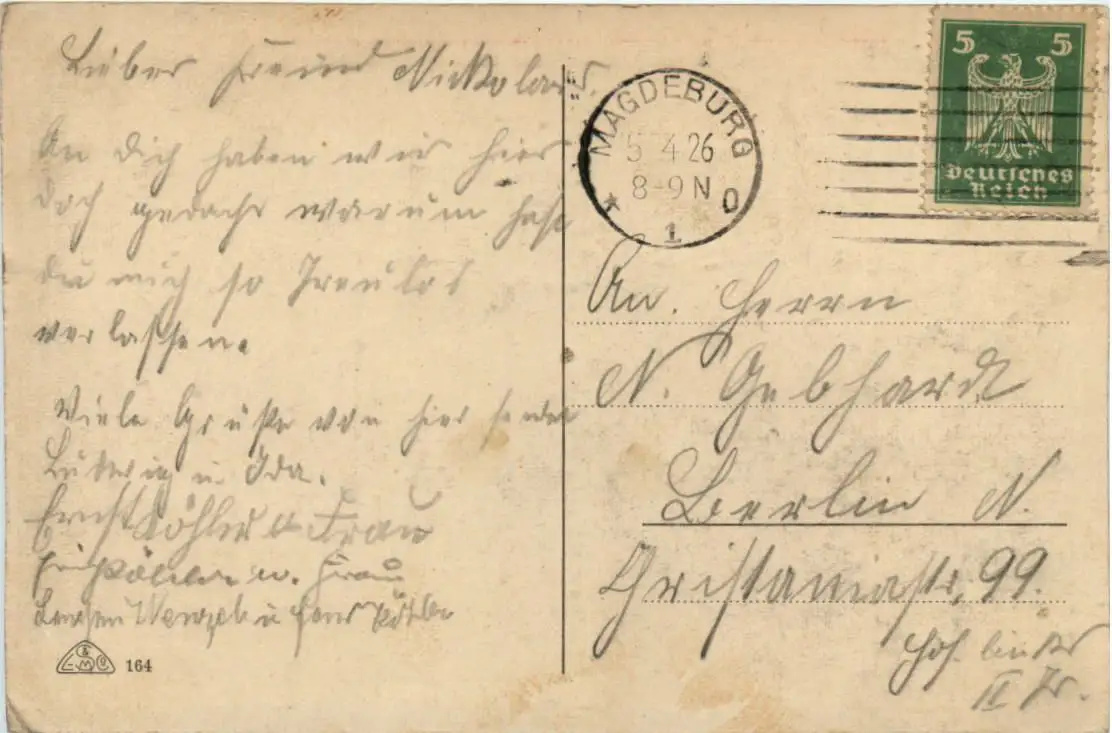 Lieber Freund Nickolaus.
An dich haben wir hier
doch gedacht warum hast
du mich so Treulos
verlassen.
Viele Grüße von hier sendet
Ludwig u Ida.
Ernst Köhler u Frau
Köhler u. Frau
Wenzel u
164
MAGDEBURG
5 4 26
8-9 N
* 1 o
5 5
Deutsches
Reich
An. Herrn
N. Gebhardt
Berlin N.
Christaniastr. 99.
Hof. links
II Tr.